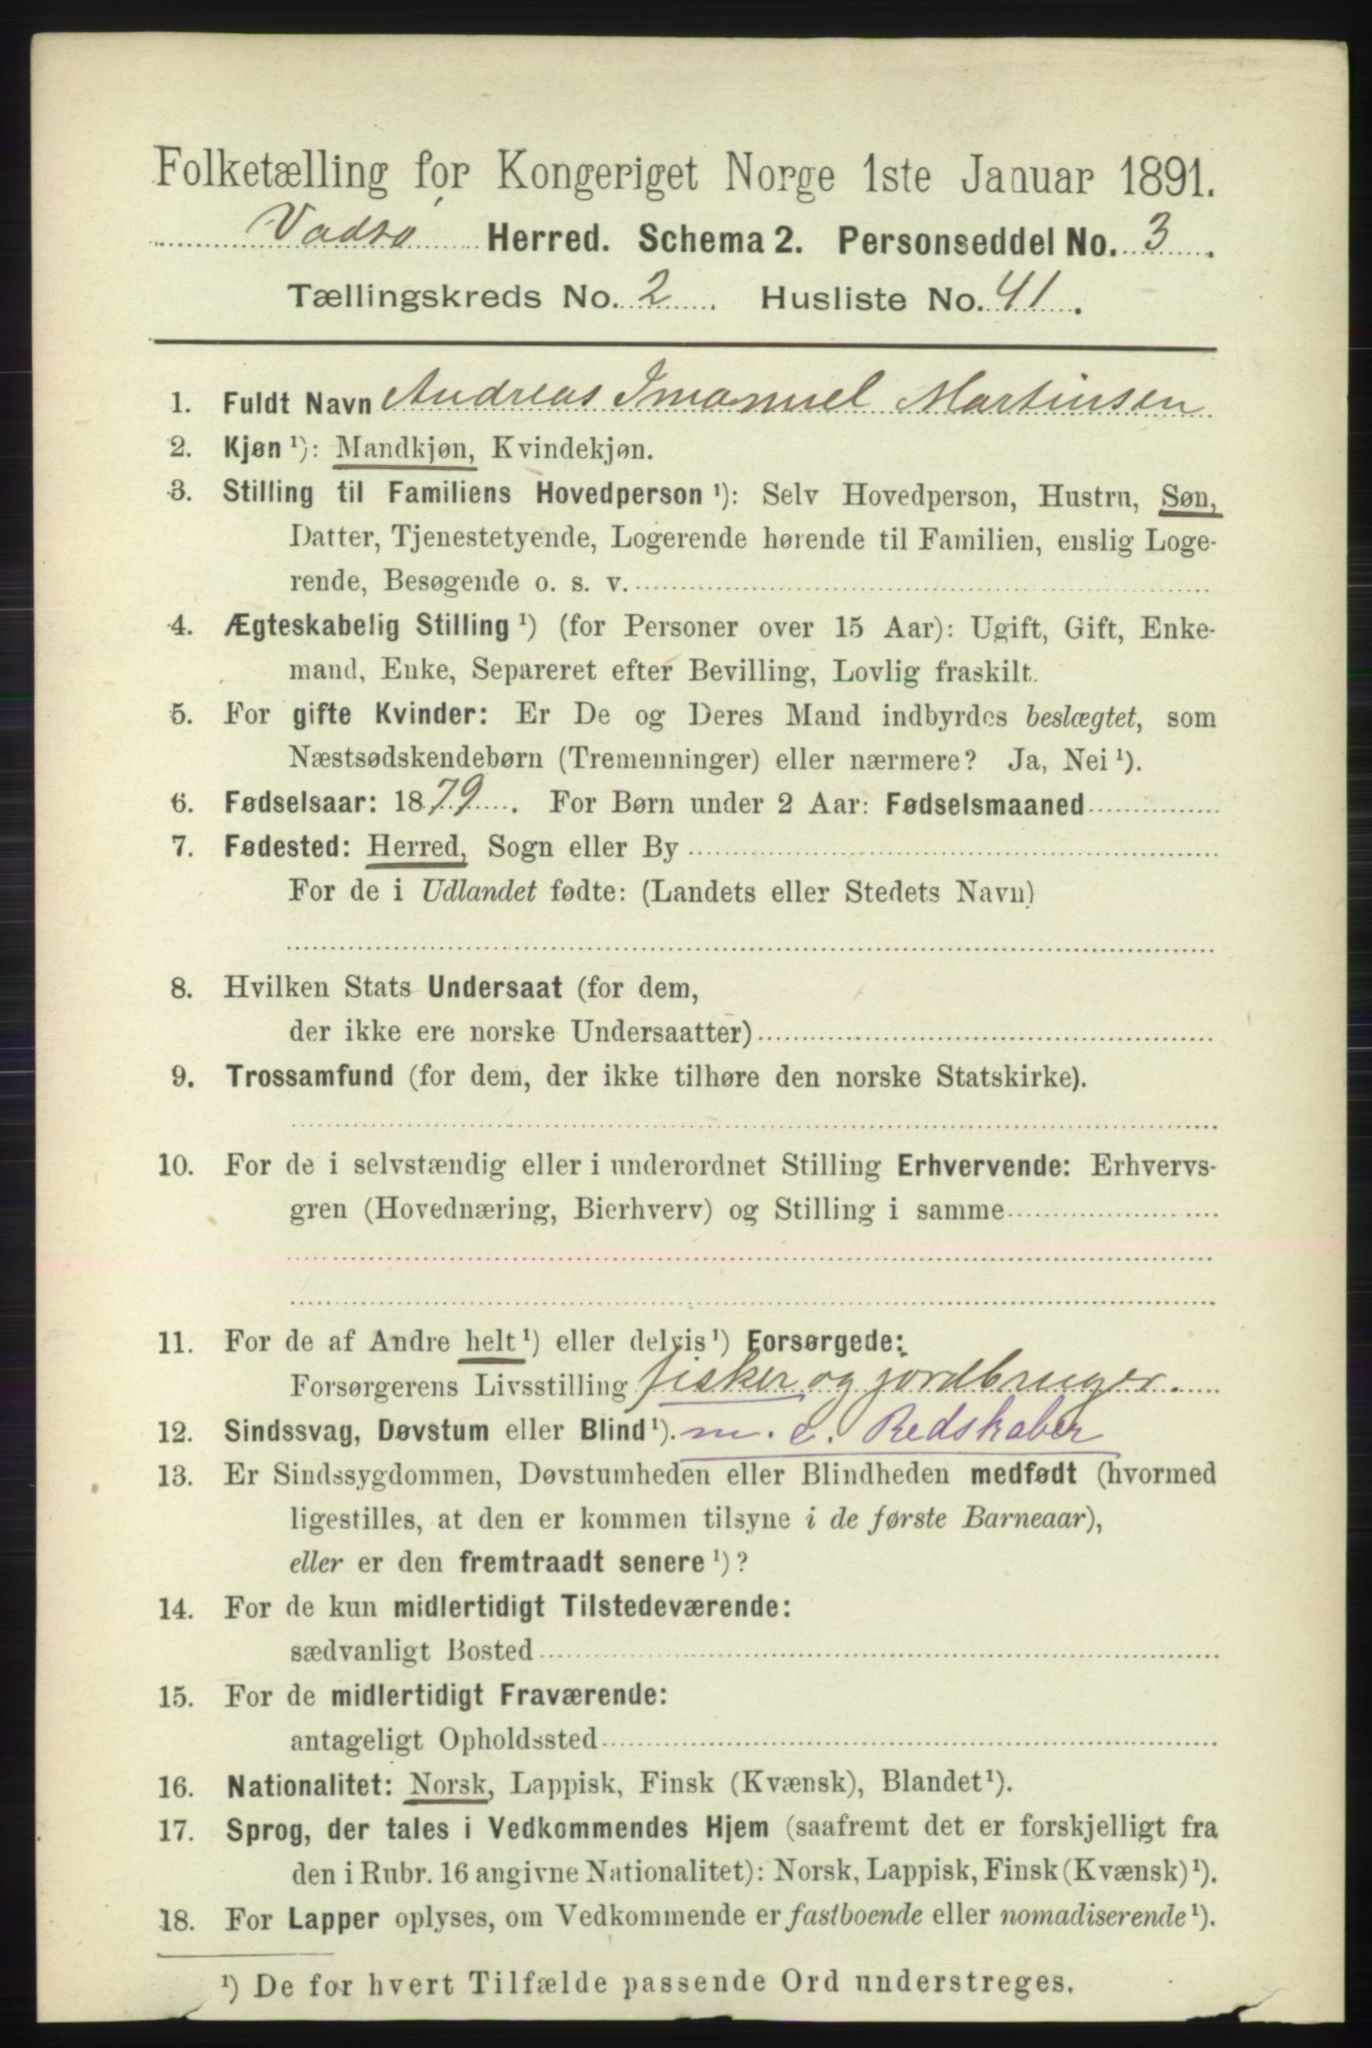 Folketælling for Kongeriget Norge 1ste Januar 1891.
Vadsø Herred. Schema 2. Personseddel No. 3.
Tællingskreds No. 2. Husliste No. 41.
1. Fuldt Navn Andreas Imanuel Martinsen
2. Kjøn ¹): Mandkjøn, Kvindekjøn.
3. Stilling til Familiens Hovedperson ¹): Selv Hovedperson, Hustru, Søn,
Datter, Tjenestetyende, Logerende hørende til Familien, enslig Loge-
rende, Besøgende o. s. v.
4. Ægteskabelig Stilling ¹) (for Personer over 15 Aar): Ugift, Gift, Enke-
mand, Enke, Separeret efter Bevilling, Lovlig fraskilt.
5. For gifte Kvinder: Er De og Deres Mand indbyrdes beslægtet, som
Næstsødskendebørn (Tremenninger) eller nærmere? Ja, Nei ¹).
6. Fødselsaar: 1879. For Børn under 2 Aar: Fødselsmaaned
7. Fødested: Herred, Sogn eller By
For de i Udlandet fødte: (Landets eller Stedets Navn)
8. Hvilken Stats Undersaat (for dem,
der ikke ere norske Undersaatter)
9. Trossamfund (for dem, der ikke tilhøre den norske Statskirke).
10. For de i selvstændig eller i underordnet Stilling Erhvervende: Erhvervs-
gren (Hovednæring, Bierhverv) og Stilling i samme
11. For de af Andre helt ¹) eller delvis ¹) Forsørgede:
Forsørgerens Livsstilling fisker og jordbruger.
12. Sindssvag, Døvstum eller Blind ¹). m. e. Redskaber
13. Er Sindssygdommen, Døvstumheden eller Blindheden medfødt (hvormed
ligestilles, at den er kommen tilsyne i de første Barneaar),
eller er den fremtraadt senere ¹)?
14. For de kun midlertidigt Tilstedeværende:
sædvanligt Bosted
15. For de midlertidigt Fraværende:
antageligt Opholdssted
16. Nationalitet: Norsk, Lappisk, Finsk (Kvænsk), Blandet ¹).
17. Sprog, der tales i Vedkommendes Hjem (saafremt det er forskjelligt fra
den i Rubr. 16 angivne Nationalitet): Norsk, Lappisk, Finsk (Kvænsk) ¹).
18. For Lapper oplyses, om Vedkommende er fastboende eller nomadiserende ¹).
¹) De for hvert Tilfælde passende Ord understreges.